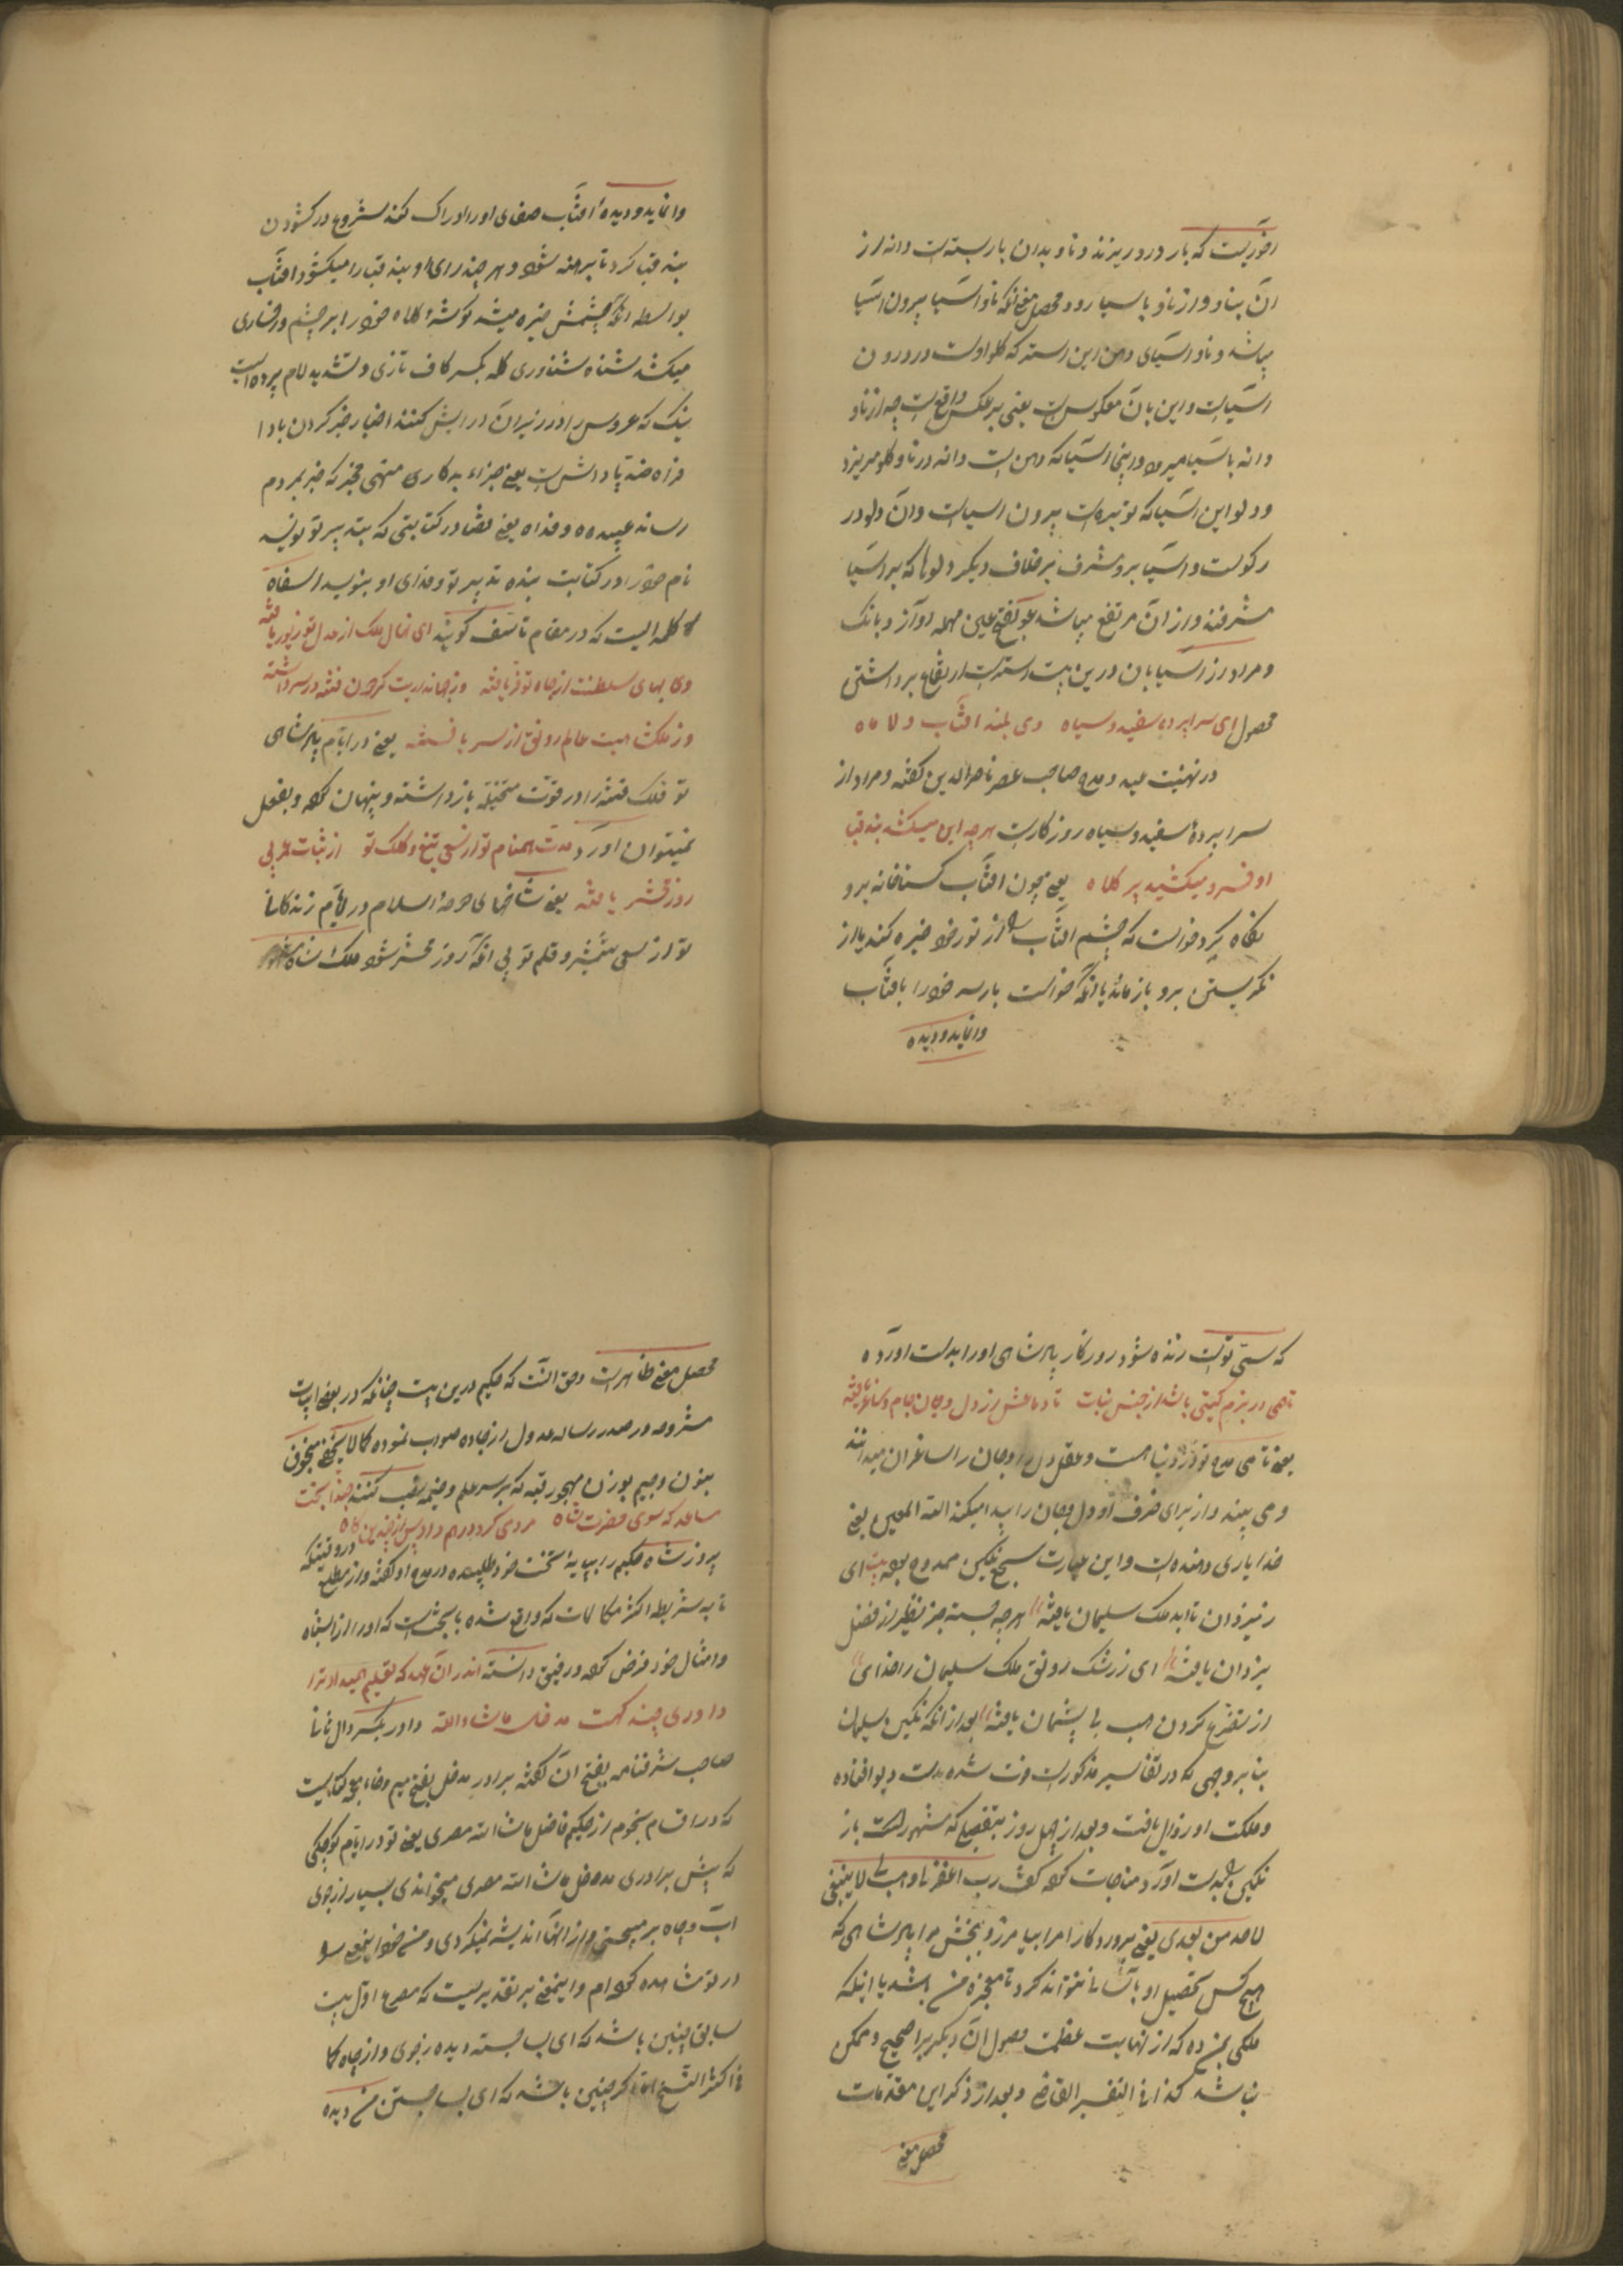 که بار درو ریزند و ناو بدان بار بسته است دانه از
آن بناو و از ناو باسیا رود محصل معنی آنکه ناو آسیا بیرون آسیا
میباشد و ناو آسیای دهن این راسته که گلو اوست در درون
آسیاست و این بآن معکوس است یعنی برعکس واقع است چه از ناو
دانه بآسیا میرود و اینجا آسیا که دهن است دانه در ناو گلو میریزد
و دلو این آسیا که است بیرون آسیاست و آن دلو در
و آسیا برو مشرف برخلاف دیگر دلوها که بر آسیا
مشرفند و از آن مرتفع میباشد بفتح عین مهمله آواز و بانک
و مراد از آسیابان درین بیت است
محصول ای سراپرده سفید و سیاه وی بلند آفتاب و لا ماه
در تهنیت عید و مدح صاحب عصر ناصرالدین گفته و مراد از
سراپردهٔ سفید و سیاه روزگارست هر چه این میکشد بند قبا
او فرو میکشید بر کلاه یعنی چون آفتاب گستاخانه برو
نگاه کرد خواست که چشم آفتاب را از نور خود خیره کند یا از
نگریستن برو باز ماند یا آنکه خواست بارسر خود را بآفتاب
وانماید و دیده
وانماید و دیدهٔ آفتاب صفای او را ادراک کند شروع در کشودن
بند قبا کرد تا برهنه شود و هر چند رای او بند قبا را میکشود آفتاب
بواسطه آنکه چشمش خیره میشد گوشهٔ کلاه خود را بر چشم و رخساری
میکشد شناه شناوری کله بکسر کاف تازی و تشدید لام پرده ایست
تنک که عروس را در زیر آن آرایش کنند اخبار خبر کردن باد ا
فراه ضد پاداش است یعنی جزاء بدکاری منهی مخبر که خبر بمردم
رساند عبیده و فداه یعنی قضا در کتابتی که بتدبیر تو نویسد
نام خود را در کتابت بنده تدبیر تو و فدای او بنویسد اسفاه
کلمه ایست که در مقام تاسف گویند ای نهال ملک از عدل تو
وی بهای سلطنت از جاه تو فر یافته
وز ملکت عالم رونق از سر یافته یعنی در ایام پادشاهی
تو فلک فتنه را در قوت متخیله بازداشته و پنهان کرده و بفعل
نمیتوان آورد مدت همنام تو از سعی تیغ و کلک تو از ثبات
روز محشر یافته یعنی حوزهٔ اسلام در ایام زندگانی
تو از سعی شمشیر و قلم تو بی آنکه روز محشر شود
که سمی توست زنده شود و روزگار پادشاهی او را بدست آورده
تا می در بزم گیتی باشد از جنس نبات تا دماغش از دل و جان جام و ساغر یافته
یعنی تا می مدح تو در دنیا هست و عقل دل و جان را ساغر آن میداند
و می بیند و از برای ظرف او دل و جان را پیدا میکند الله المعین یعنی
خدا یاری دهنده است و این عبارت سجع نگین ممدوح بوده بیت ای
ز یزدان تا ابد ملک سلیمان یافته هر چه جسته جز نظیر از فضل
یزدان یافته ای ز رشک رونق ملک سلیمان را خدای
از تضرع کردن هب لی پشیمان یافته بعد از آنکه نگین سلیمان
بنا بر وجهی که در تفاسیر مذکورست فوت شده بدست دیو افتاده
و ملکت او زوال یافت و بعد از چهل روز بتفصیلی که مشهورست باز
نگین را بدست آورد مناجات کرده گفت رب اغفر لی و هب لی ملکا لا ینبغی
لاحد من بعدی یعنی پروردگارا مرا بیامرز و ببخش مرا پادشاهی که
هیچ کس تحصیل او بآسانی نتواند کرد تا معجزه من باشد یا اینکه
ملکی بمن ده که از نهایت عظمت حصول آن دیگر را صحیح و ممکن
نباشد کذا فی التفسیر القاضی و بعد از ذکر این مقدمات
محصل معنی
محصل معنی ظاهرست و حق آنست که حکیم درین بیت چنانکه در بعضی ابیات
مشروحه در صدر رساله عدول از جاده صواب نموده کما لا یخفی منجوق
بنون و جیم بوزن قبه که بر سر علم و خیمه نصب کنند حبذا بخت
مساعد که سوی حضرت شاه مردمی کرد
پیروز شاه حکیم را بپایهٔ تخت خود طلبیده در مدح او گفته و از مطلع
تا به شریطه اکثر مکالمات که واقع شده با بختست که او را از اشباه
و امثال خود فرض کرده و رفیق دانسته اندر آن عهد که تعلیم همیداد ترا
داوری چند کهت مدخل ما شاء الله دادر بکسر دال ثانی
صاحب شرفنامه بفتح آن گفته برادر مدخل بفتح میم و خاء معجمه کتابیست
که در اقسام نجوم از حکیم فاضل ما شاء الله مصری یعنی تو در ایام کوچکی
که پیش برادری مدخل ما شاء الله مصری میخواندی بسیار از جوی
آب و چاه بر میجستی و از آنها اندیشه نمیکردی و من خود اینمعنی را
در تو مشاهده کرده ام و اینمعنی بر تقدیریست که مصرع اول بیت
سابق چنین باشد که ای بسا جسته دیده ز جوی و از چاه کما
فی اکثر النسخ اما اگر چنین باشد که ای بسا جستن من دیده